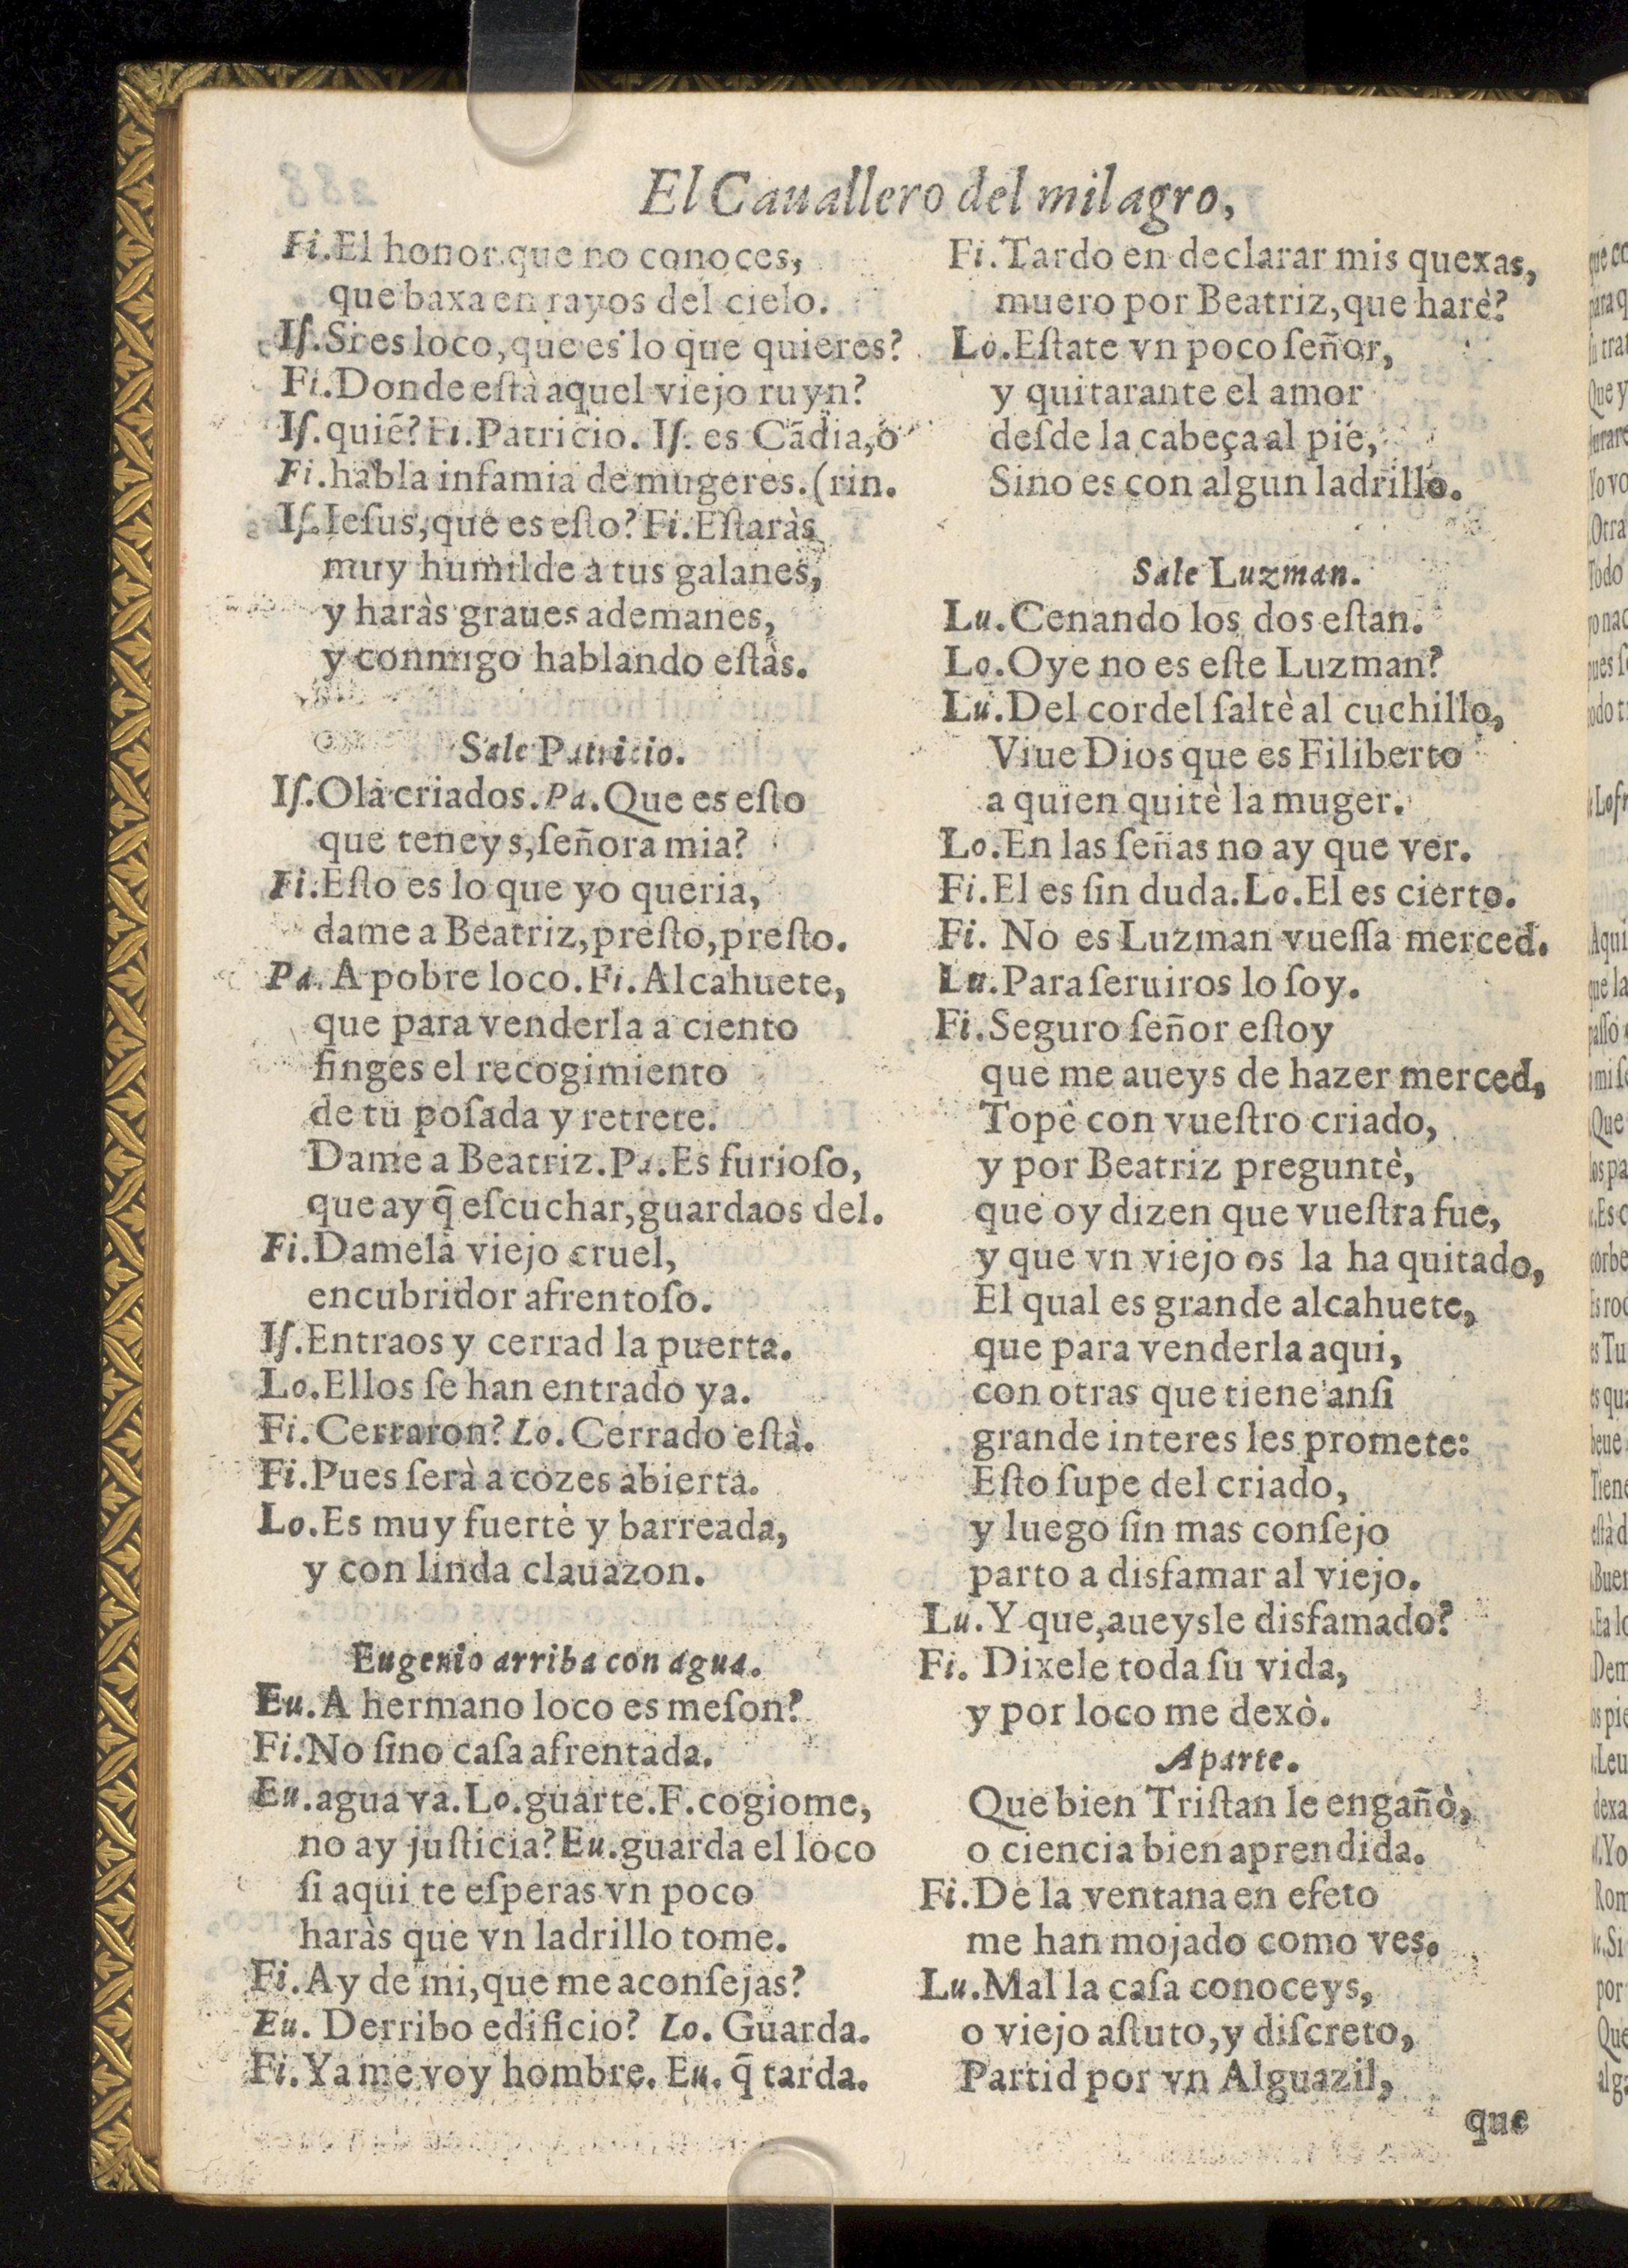 El Cauallero del milagro,
Fi.El honor que no conoces,
que baxa en rayos del cielo.
Iſ.Si es loco, que es lo que quieres?
Fi.Donde eſtà aquel viejo ruyn?
Iſ.quiẽ? Fi.Patricio. Iſ. es Cãdia, o
Fi.habla infamia de mugeres.(rin.
Iſ.Ieſus, que es eſto? Fi.Eſtaràs
muy humilde a tus galanes,
y haràs graues ademanes,
y conmigo hablando eſtàs.
Sale Patricio.
Iſ.Ola criados.Pa.Que es eſto
que teneys, ſeñora mia?
Fi.Eſto es lo que yo queria,
dame a Beatriz, preſto, preſto.
Pa. A pobre loco.Fi.Alcahuete,
que para venderla a ciento
finges el recogimiento
de tu poſada y retrete.
Dame a Beatriz.Pa.Es furioſo,
que ay q̃ eſcuchar, guardaos del.
Fi.Damela viejo cruel,
encubridor afrentoſo.
Iſ.Entraos y cerrad la puerta.
Lo.Ellos ſe han entrado ya.
Fi.Cerraron? Lo.Cerrado eſtà.
Fi.Pues ſerà a cozes abierta.
Lo.Es muy fuerte y barreada,
y con linda clauazon.
Eugenio arriba con agua.
Eu.A hermano loco es meſon?
Fi.No ſino caſa afrentada.
Eu.agua va.Lo.guarte.F.cogiome,
no ay juſticia? Eu.guarda el loco
ſi aqui te eſperas vn poco
haràs que vn ladrillo tome.
Fi.Ay de mi, que me aconſejas?
Eu. Derribo edificio? Lo. Guarda.
Fi.Ya me voy hombre. Eu. q̃ tarda.
Fi.Tardo en declarar mis quexas,
muero por Beatriz, que harè?
Lo.Eſtate vn poco ſeñor,
y quitarante el amor
deſde la cabeça al pie,
Sino es con algun ladrillo.
Sale Luzman.
Lu.Cenando los dos eſtan.
Lo.Oye no es eſte Luzman?
Lu.Del cordel ſaltè al cuchillo,
Viue Dios que es Filiberto
a quien quitè la muger.
Lo.En las ſeñas no ay que ver.
Fi.El es ſin duda.Lo.El es cierto.
Fi. No es Luzman vueſſa merced.
Lu.Para ſeruiros lo ſoy.
Fi.Seguro ſeñor eſtoy
que me aueys de hazer merced,
Topè con vueſtro criado,
y por Beatriz preguntè,
que oy dizen que vueſtra fue,
y que vn viejo os la ha quitado,
El qual es grande alcahuete,
que para venderla aqui,
con otras que tiene anſi
grande interes les promete:
Eſto ſupe del criado,
y luego ſin mas conſejo
parto a disfamar al viejo.
Lu.Y que, aueysle disfamado?
Fi. Dixele toda ſu vida,
y por loco me dexò.
Aparte.
Que bien Triſtan le engañò,
o ciencia bien aprendida.
Fi.De la ventana en efeto
me han mojado como ves.
Lu.Mal la caſa conoceys,
o viejo aſtuto, y diſcreto,
Partid por vn Alguazil,
que